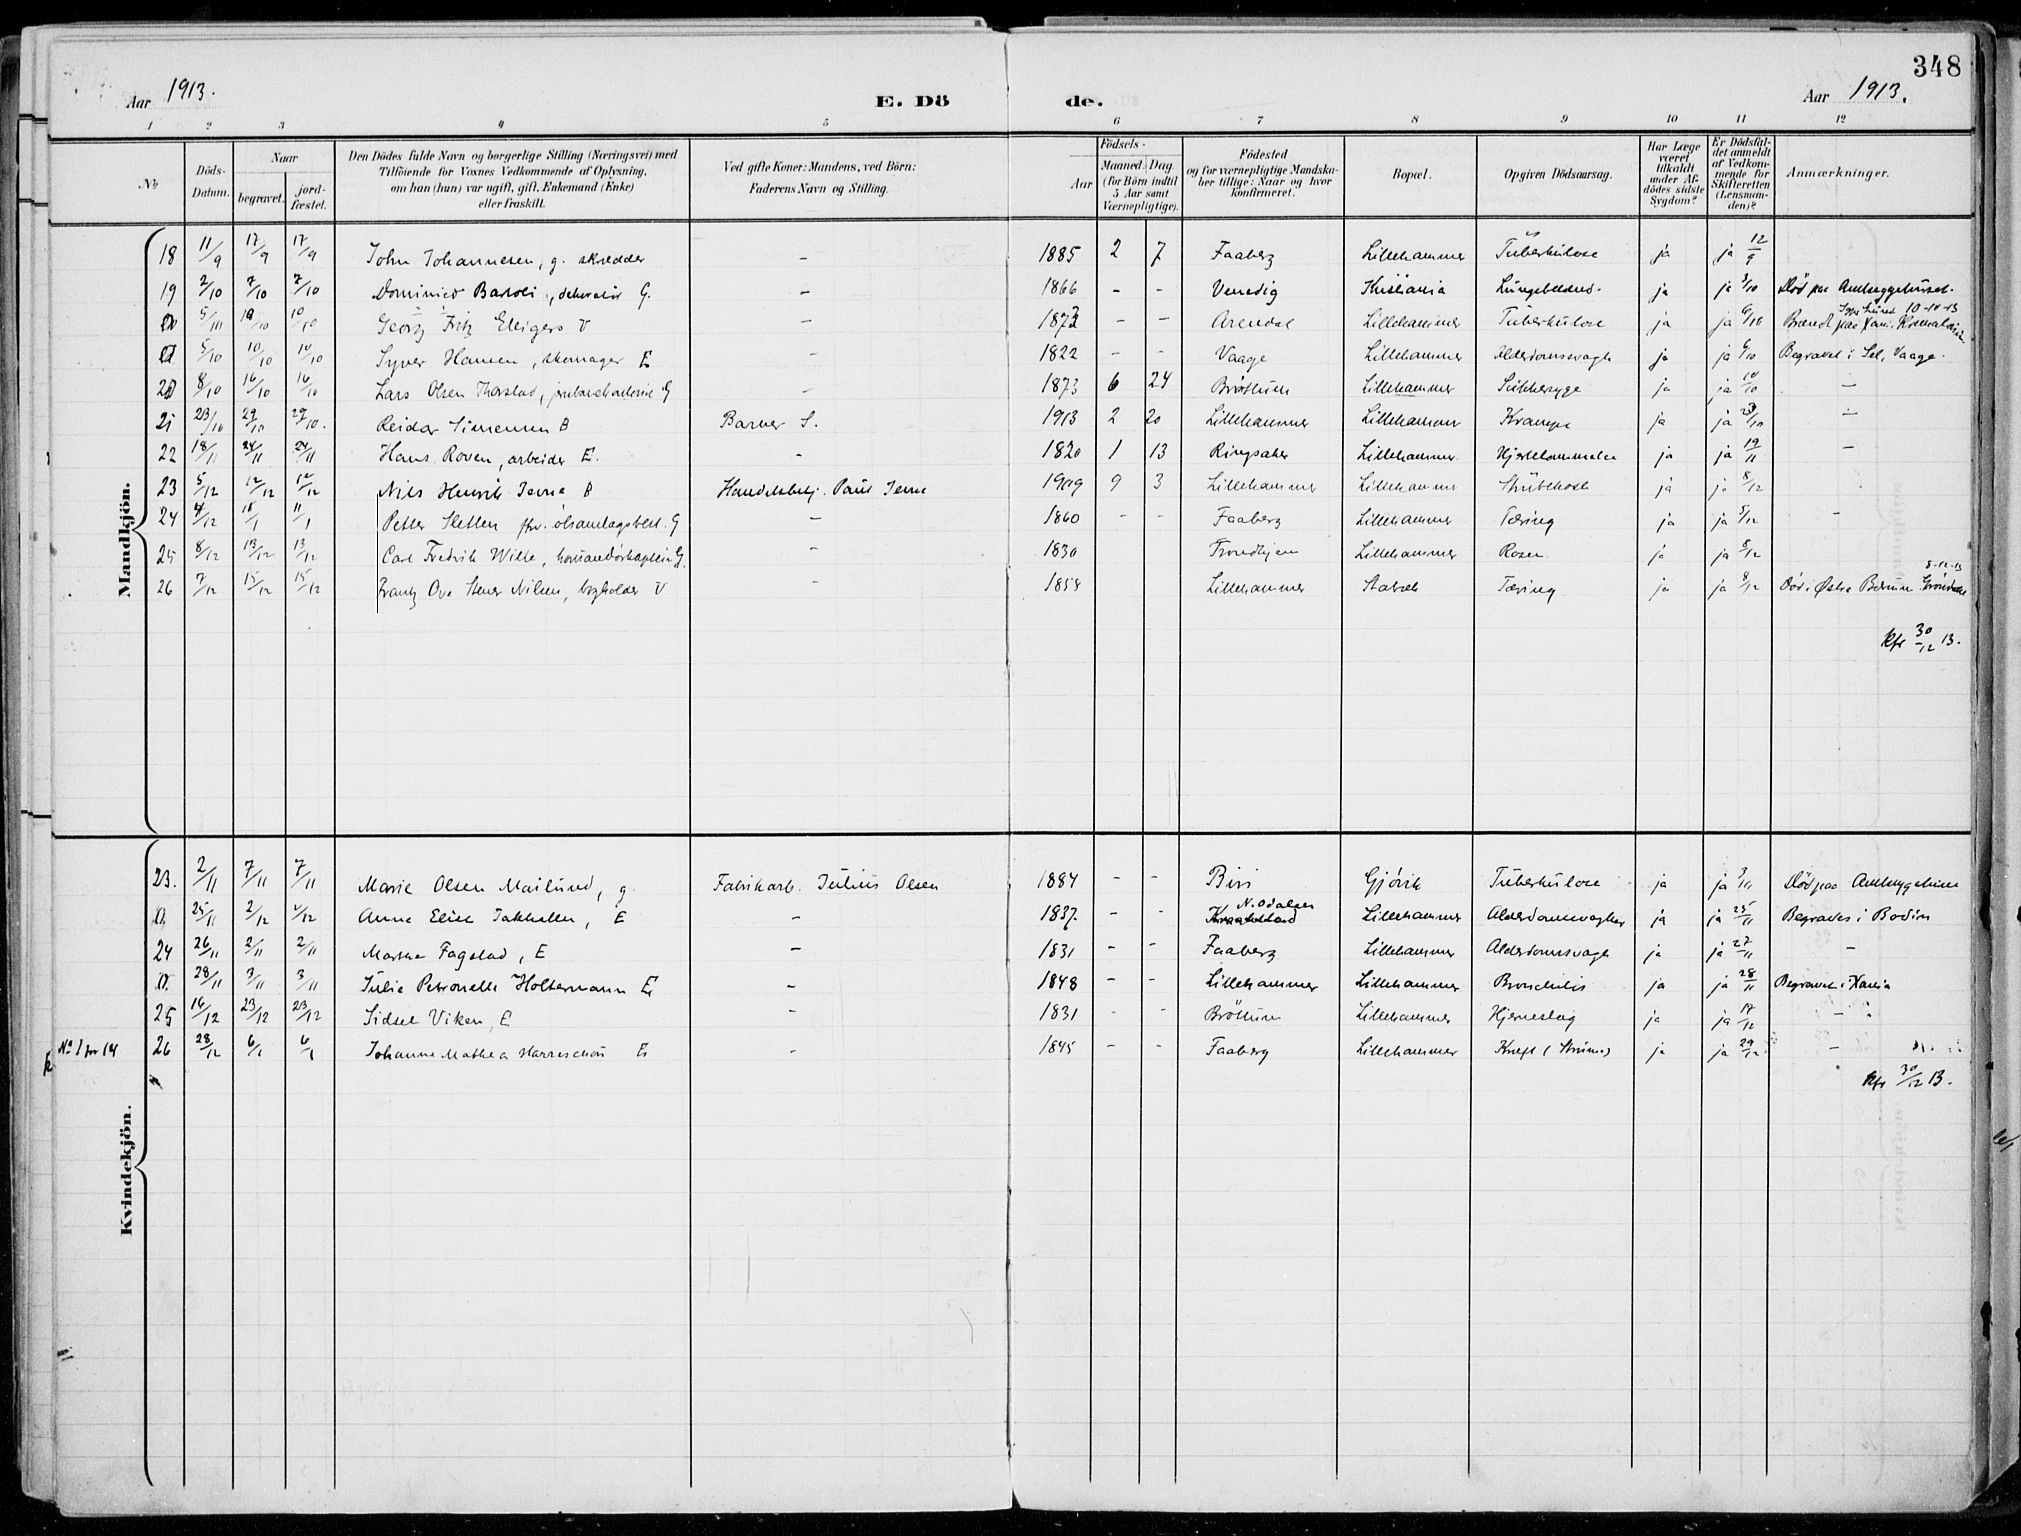 348
Aar 1913.
E. Dö
de.
Aar 1913.
1 2 3 4 5 6 7 8 9 10 11 12
No
Döds-
Datum.
Naar
begravet.
jord-
fæstet.
Den Dödes fulde Navn og borgerlige Stilling (Næringsvei) med
Tilföiende for Voxnes Vedkommende af Oplysning,
om han (hun) var ugift, gift, Enkemand (Enke)
eller fraskilt.
Ved gifte Koner: Mandens, ved Börn:
Faderens Navn og Stilling.
Födsels-
Aar
Maaned. Dag
(for Börn indtil
5 Aar samt
Værnepligtige).
Födested
og for værnepligtige Mandska-
ber tillige: Naar og hvor
konfirmeret.
Bopæl.
Opgiven Dödsaarsag.
Har Læge
været
tilkaldt
under Af-
dödes sidste
Sygdom?
Er Dödsfal-
det anmeldt
af Vedkom-
mende for
Skifteretten
(Lensman-
den)?
Anmærkninger.
Mandkjön.
18 11/9 17/9 17/9 John Johannesen, g. skredder - 1885 2 7 Faaberg Lillehammer Tuberkulose ja ja 12/9
19 2/10 7/10 7/10 Dominico Bartoli, dekoratör G. - 1866 - - Venedig Kristiania ja ja 3/10 Död paa Amtssygehuset.
5/10 10/10 10/10 Georg Fritz V - 1873 - - Arendal Lillehammer Tuberkulose ja ja 6/10 Brændt paa 10-10-13
5/10 10/10 10/10 Syver Hansen, skomager E - 1822 - - Vaage Lillehammer Alderdomsvagh ja ja 6/10 Begravet i Sel, Vaage.
20 8/10 16/10 16/10 Lars Olsen G - 1873 6 24 Bröttum Lillehammer Sukkersyge ja ja 10/10 -
21 23/10 29/10 29/10. Reidar Simensen B Barber S. 1913 2 20 Lillehammer Lillehammer Krampe ja ja 23/10 -
22 18/11 24/11 24/11 Hans Roven, arbeider E. - 1820 1 13 Ringsaker Lillehammer ja ja 19/11 -
23 5/12 12/12 12/12 Nils Henrik Jevne B Handelsbetj. Paul Jevne 1909 9 3 Lillehammer Lillehammer Strubehoste ja ja 8/12
24 4/12 11/1 11/1 Petter Sletten fhv. ölsamlagsbest. G - 1860 Faaberg Lillehammer Tæring ja ja 5/12 -
25 8/12 13/12 13/12 Carl Fredrik Wille, komandörkaptein G. - 1830 Trondhjem Lillehammer Rosen ja ja 8/12
26 7/12 15/12 15/12 Frantz Ove Nilsen, bogholder V - 1858 Lillehammer Stabæk Tæring ja ja 8/12 Död i Östre Bærum 8-12-13
Kfr 30/12 13.
Kvindekjön.
23. 2/11 7/11 7/11 Marie Olsen Mailund, g. Fabrikarb. Julius Olsen 1884 - - Biri Gjövik Tuberkulose ja ja Död paa Amtssygehuset
25/11 2/12 2/12 Anna Elise E - 1837. - - N. Odalen Lillehammer Alderdomsvaghet ja ja 25/11 Begravet i Bodin
24 26/11 2/11 2/11 Marthe Fagstad, E - 1831 - - Faaberg Lillehammer Alderdomsvagh ja ja 27/11 -
28/11 3/11 3/11 Julie Petronelle Holtermann E - 1848 - - Lillehammer Lillehammer Bronchitis ja ja 28/11 Begravet i Xania
25 16/12 23/12 23/12 Sidsel Viken, E - 1831 - - Bröttum Lillehammer Hjerneslag ja ja 17/12 -
No 1 for 14 26 28/12 6/1 6/1 Johanne Mathea Harreschou E - 1845 - - Faaberg Lillehammer Kræft (Struma) ja ja 29/12 -
Kfr 30/12 13.